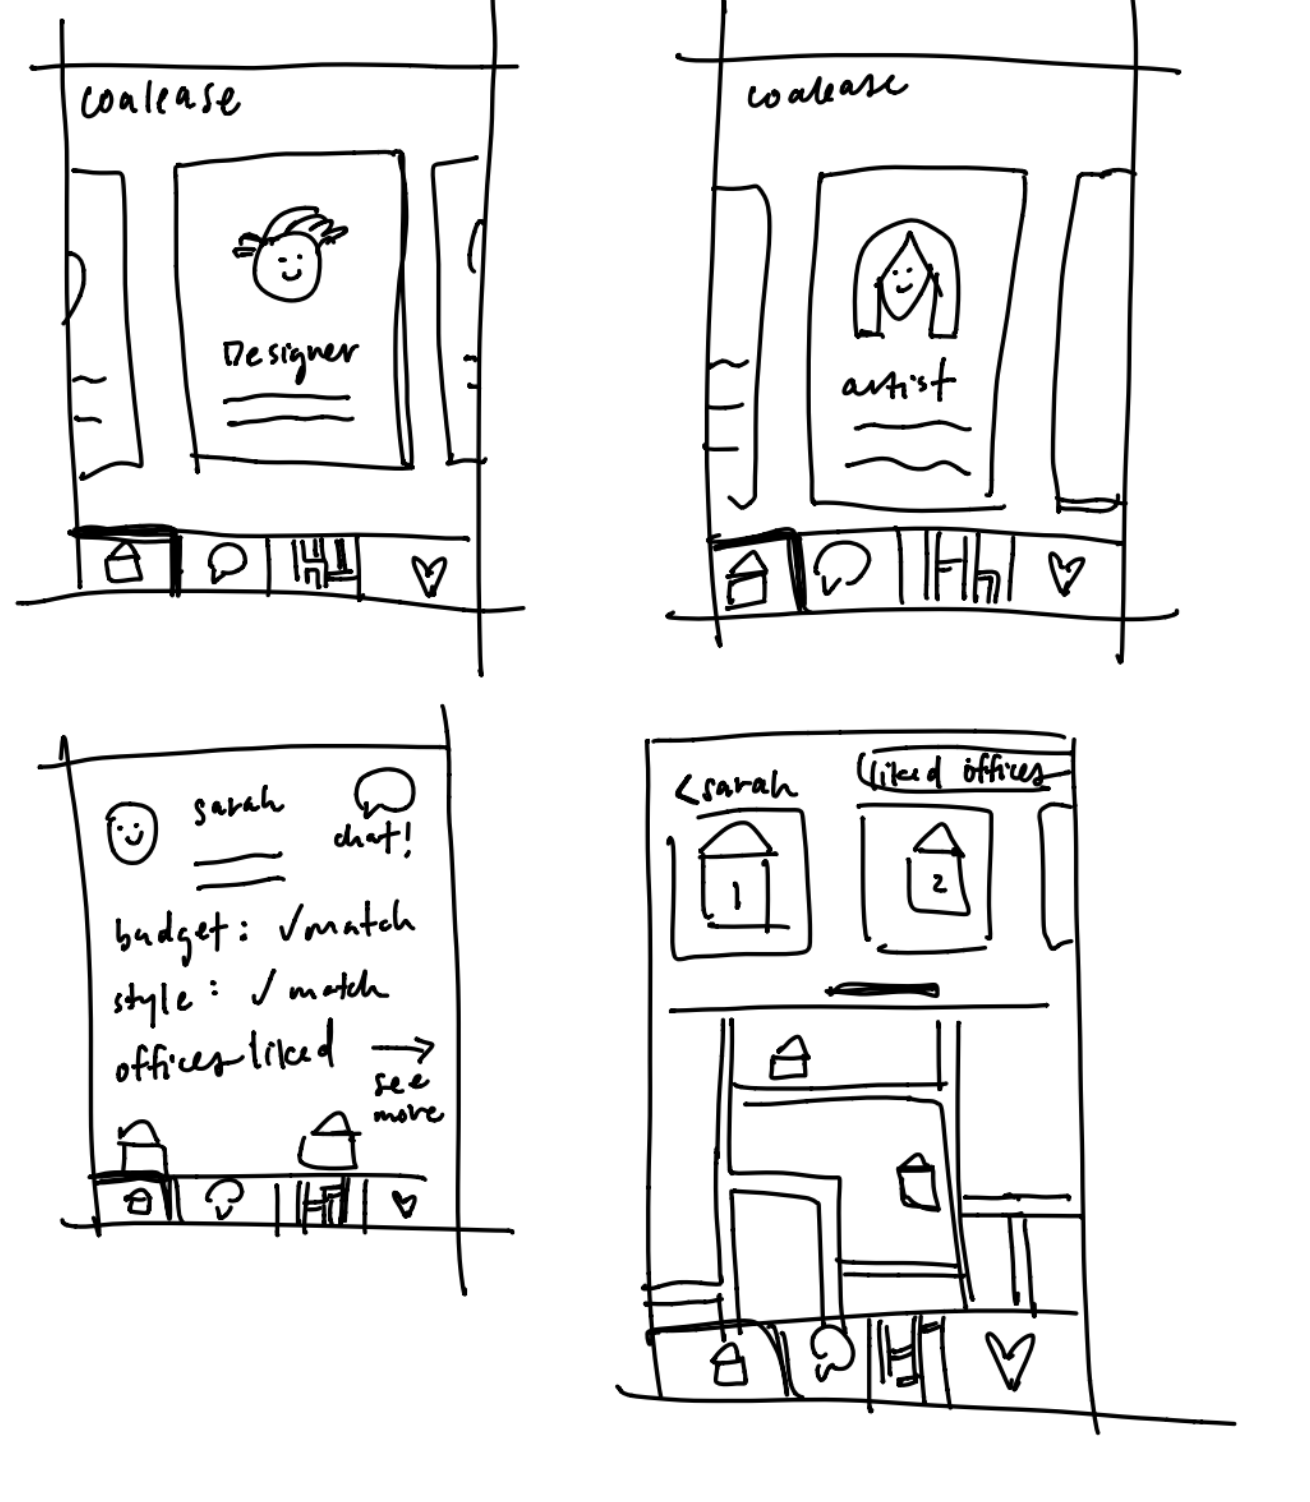 coalease
Designer
coalease
artist
sarah
chat!
budget: ✓match
style: ✓match
offices liked →
see
more
<sarah
liked offices
1
2